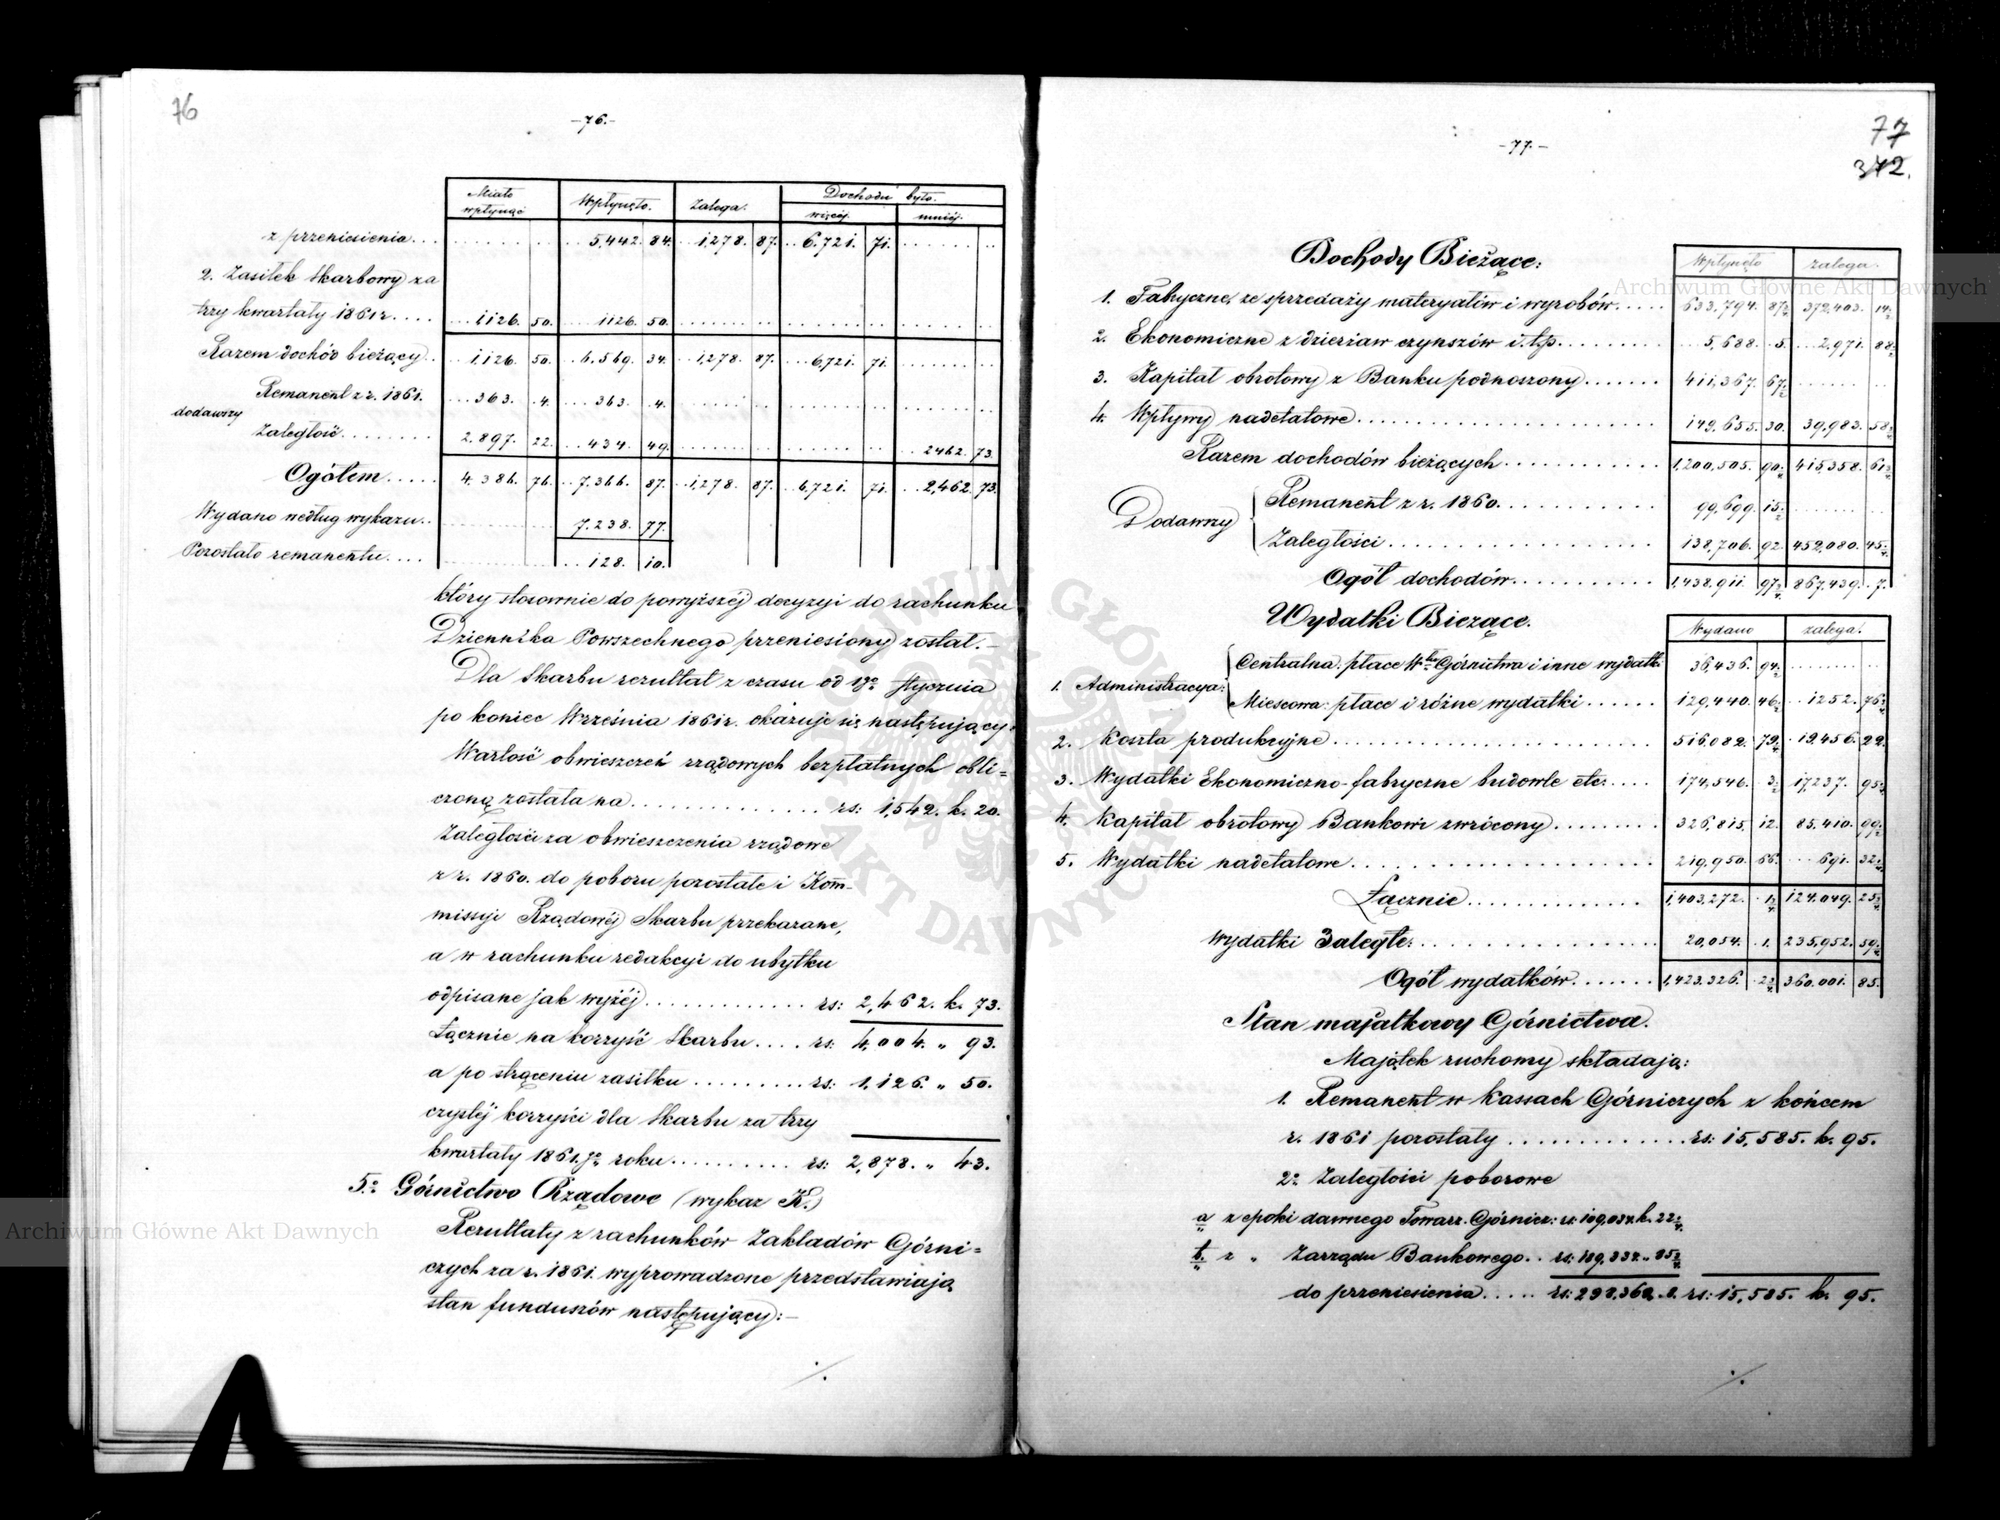 76
-76.-
Miało wpłynąć Wpłynęło. Zalega. Dochodu było.
więcéj. mniéj.
z przeniesienia... 5,442. 84. 1,278. 87. 6,721. 71.
2. Zasiłek Skarbowy za
trzy kwartały 1861 r.... 1126. 50. 1126. 50.
Razem dochód bieżący.. 1,126. 50. 6,569. 34. 1,278. 87. 6,721. 71.
Remanent z r. 1861. 363. 4. 363. 4.
dodawszy
Zaległość........ 2.897. 22. 434. 49. 2462. 73.
Ogółem..... 4.386. 76. 7.366. 87. 1,278. 87. 6,721. 71. 2,462. 73.
Wydano według wykazu.. 7.238. 77.
Pozostało remanentu.... 128. 10.
który stosownie do powyższéj decyzyi do rachunku
Dziennika Powszechnego przeniesiony został.-
Dla Skarbu rezultat z czasu od 1go Stycznia
po koniec Września 1861 r. okazuje się następujący:
Wartość obwieszczeń rządowych bezpłatnych obli=
czoną została na............... rs: 1,542. k. 20.
Zaległości za obwieszczenia rządowe
z r. 1860. do poboru pozostałe i Kom-
missyi Rządowéj Skarbu przekazane,
a w rachunku redakcyi do ubytku
odpisane jak wyżéj............. rs: 2,462. k. 73.
Łącznie na korzyść Skarbu.... rs: 4,004. „ 93.
a po strąceniu zasiłku......... rs: 1,126. „ 50.
czystéj korzyści dla Skarbu za trzy
kwartały 1861.go roku.......... rs: 2,878. „ 43.
5o. Górnictwo Rządowe (wykaz K.)
Rezultaty z rachunków Zakładów Górni=
czych za r. 1861. wyprowadzone przedstawiają
stan funduszów następujący:-
./.
77
372.
-77.-
Dochody Bieżące:
Wpłynęło zalega.
1. Fabryczne, ze sprzedaży materyałów i wyrobów.... 633,794. 372,403.
2. Ekonomiczne z dzierżaw czynszów i.t.p......... 5,688. 5. 2,971.
3. Kapitał obrotowy z Banku podnoszony....... 411,367. 67.
4. Wpływy nadetatowe................... 149.655. 30. 39,983.
Razem dochodów bieżących........... 1,200,505. 415,358.
Dodawszy
Remanent z r. 1860........... 99,699.
Zaległości.................. 138,706. 92. 452,080.
Ogół dochodów........... 1,438,911. 867,439. 7.
Wydatki Bieżące.
Wydano zalega.
1. Administracya:
Centralna: płace Włu Górnictwa i inne wydatk. 36,436.
Miescowa: płace i różne wydatki...... 129,440. 1252.
2. Koszta produkcyjne..................... 516,082. 19,456. 22.
3. Wydatki Ekonomiczno-fabryczne budowle etc:.... 174,546. 17,237.
4. Kapitał obrotowy Bankowi zwrócony......... 326,815. 12. 85,410.
5. Wydatki nadetatowe..................... 219,950. 66. 691.
Łącznie............... 1,403,272. 124,049.
Wydatki Zaległe:................ 20,054. 1. 235,952.
Ogół wydatków....... 1,423,326. 360,001. 85.
Stan majątkowy Górnictwa.
Majątek ruchomy składają:
1. Remanent w kassach Górniczych z końcem
r. 1861 pozostały.............. rs: 15,585. k. 95.
2o. Zaległości poborowe
a z epoki dawnego Towarz. Górnicz: rs: 109,034. k.
b. z „ Zarządu Bankowego..
do przeniesienia..... rs: 15,585. k. 95.
./.
Archiwum Główne Akt Dawnych
Archiwum Główne Akt Dawnych
ARCHIWUM GŁÓWNE AKT DAWNYCH